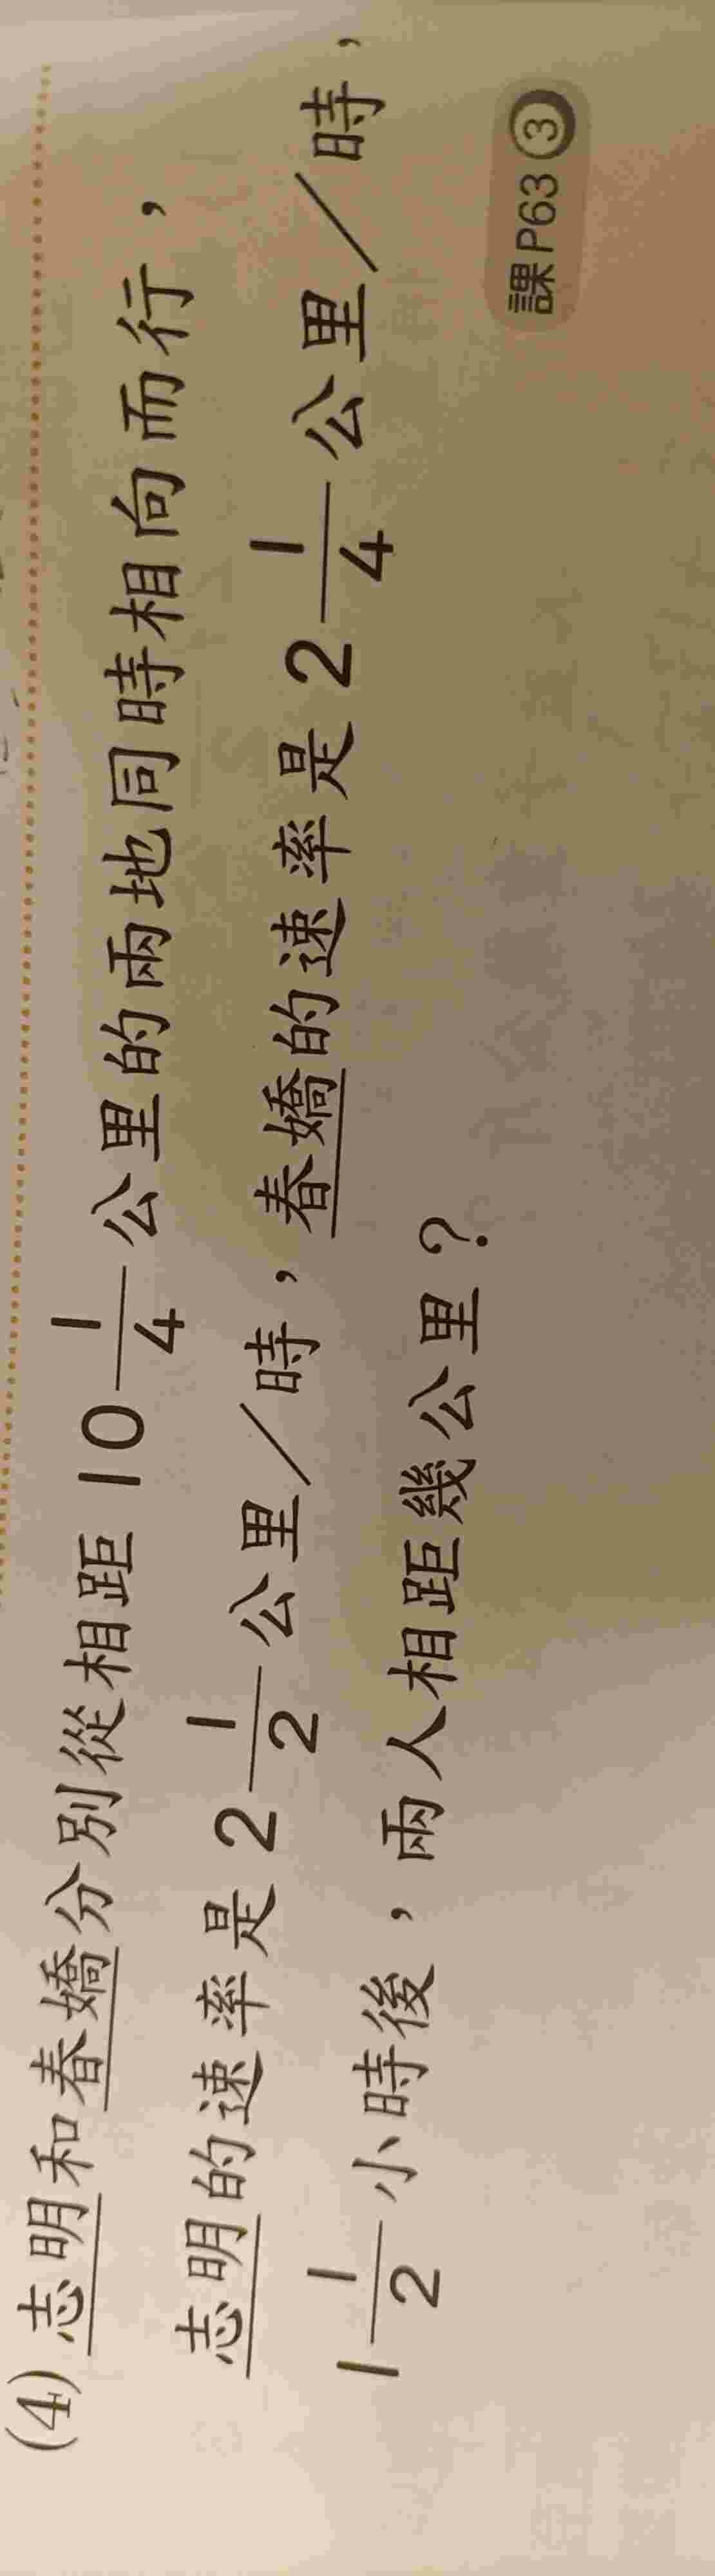 (4) 志明和春嬌分別從相距 10 1/4 公里的兩地同時相向而行，
志明的速率是 2 1/2 公里／時，春嬌的速率是 2 1/4 公里／時，
1 1/2 小時後，兩人相距幾公里？
課P63③